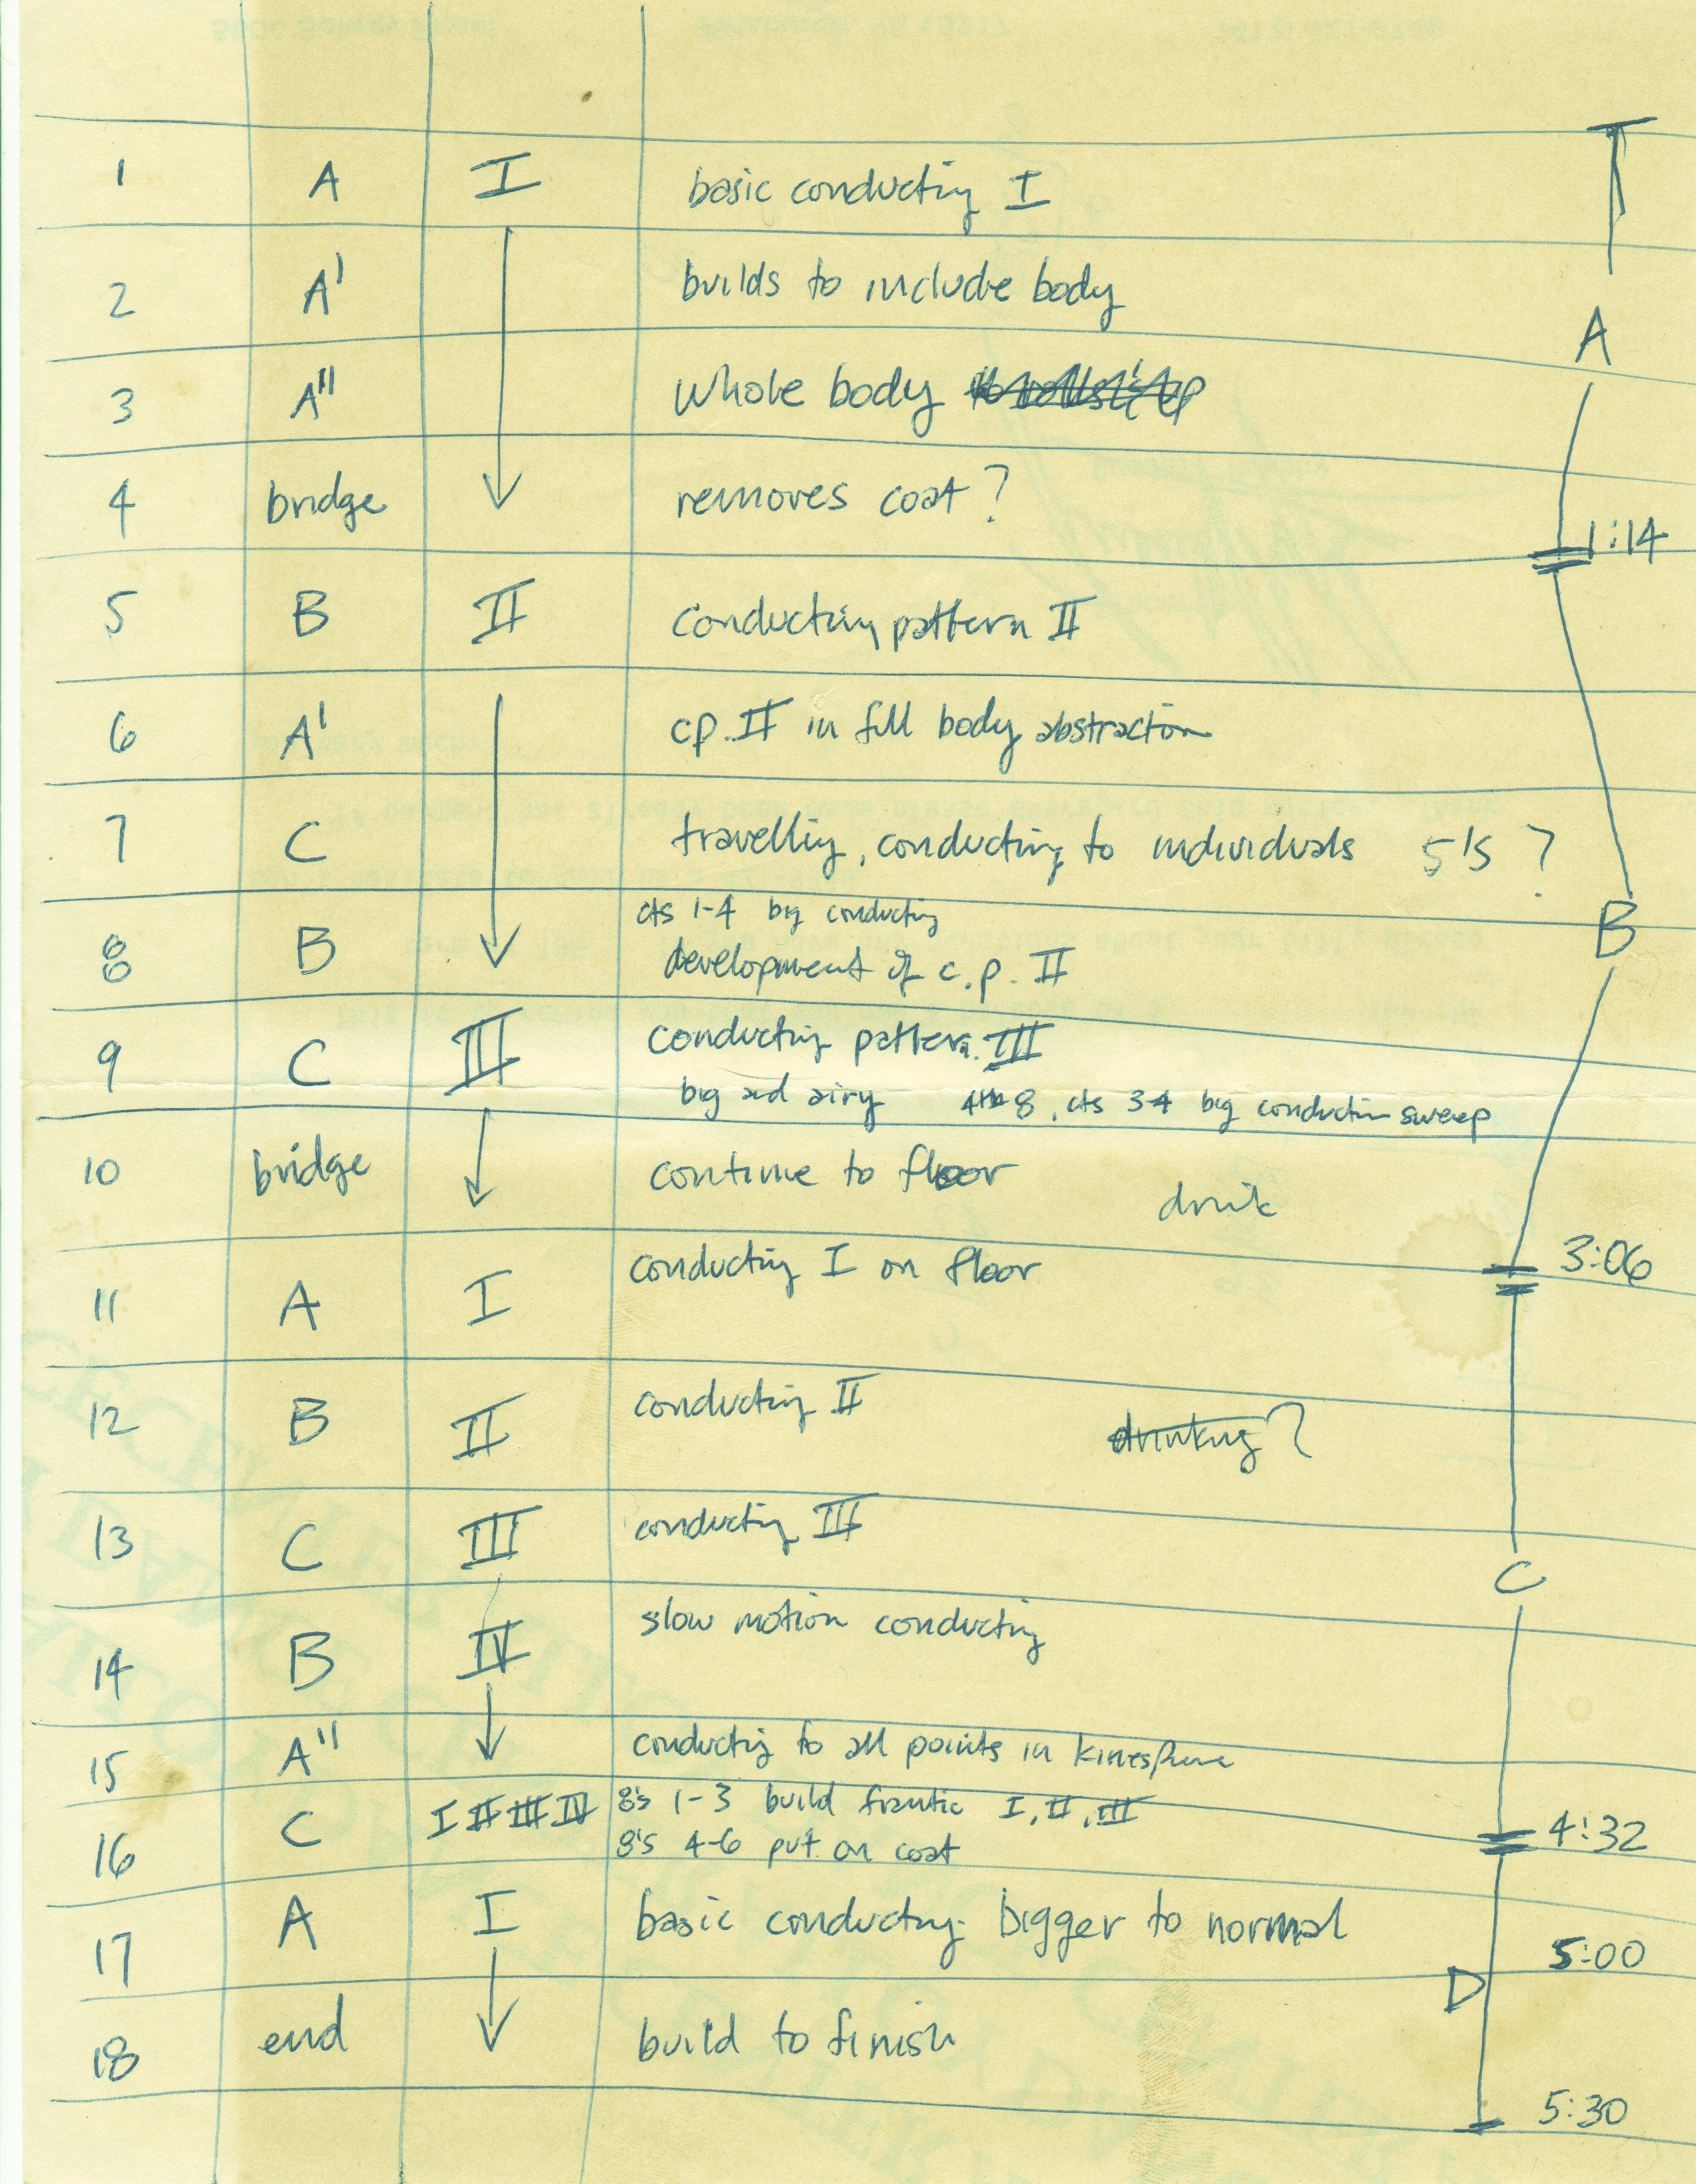 1 A I basic conducting I
2 A' builds to include body
A
3 A" whole body
4 bridge removes coat?
1:14
5 B II Conducting pattern II
6 A' cp. II in full body abstraction
7 C travelling, conducting to individuals 5's ?
cts 1-4 big conducting
B
8 B development of c.p. II
9 C III conducting pattern III
big and airy 4th 8, cts 3-4 big conducting sweep
10 bridge continue to floor
drink
3:06
11 A I conducting I on floor
12 B II conducting II
drinking?
13 C III conducting III
C
14 B IV slow motion conducting
15 A" conducting to all points in kinesphere
16 C I II III IV 8's 1-3 build frantic I, II, III
8's 4-6 put on coat
4:32
17 A I basic conducting bigger to normal
5:00
D
18 end build to finish
5:30